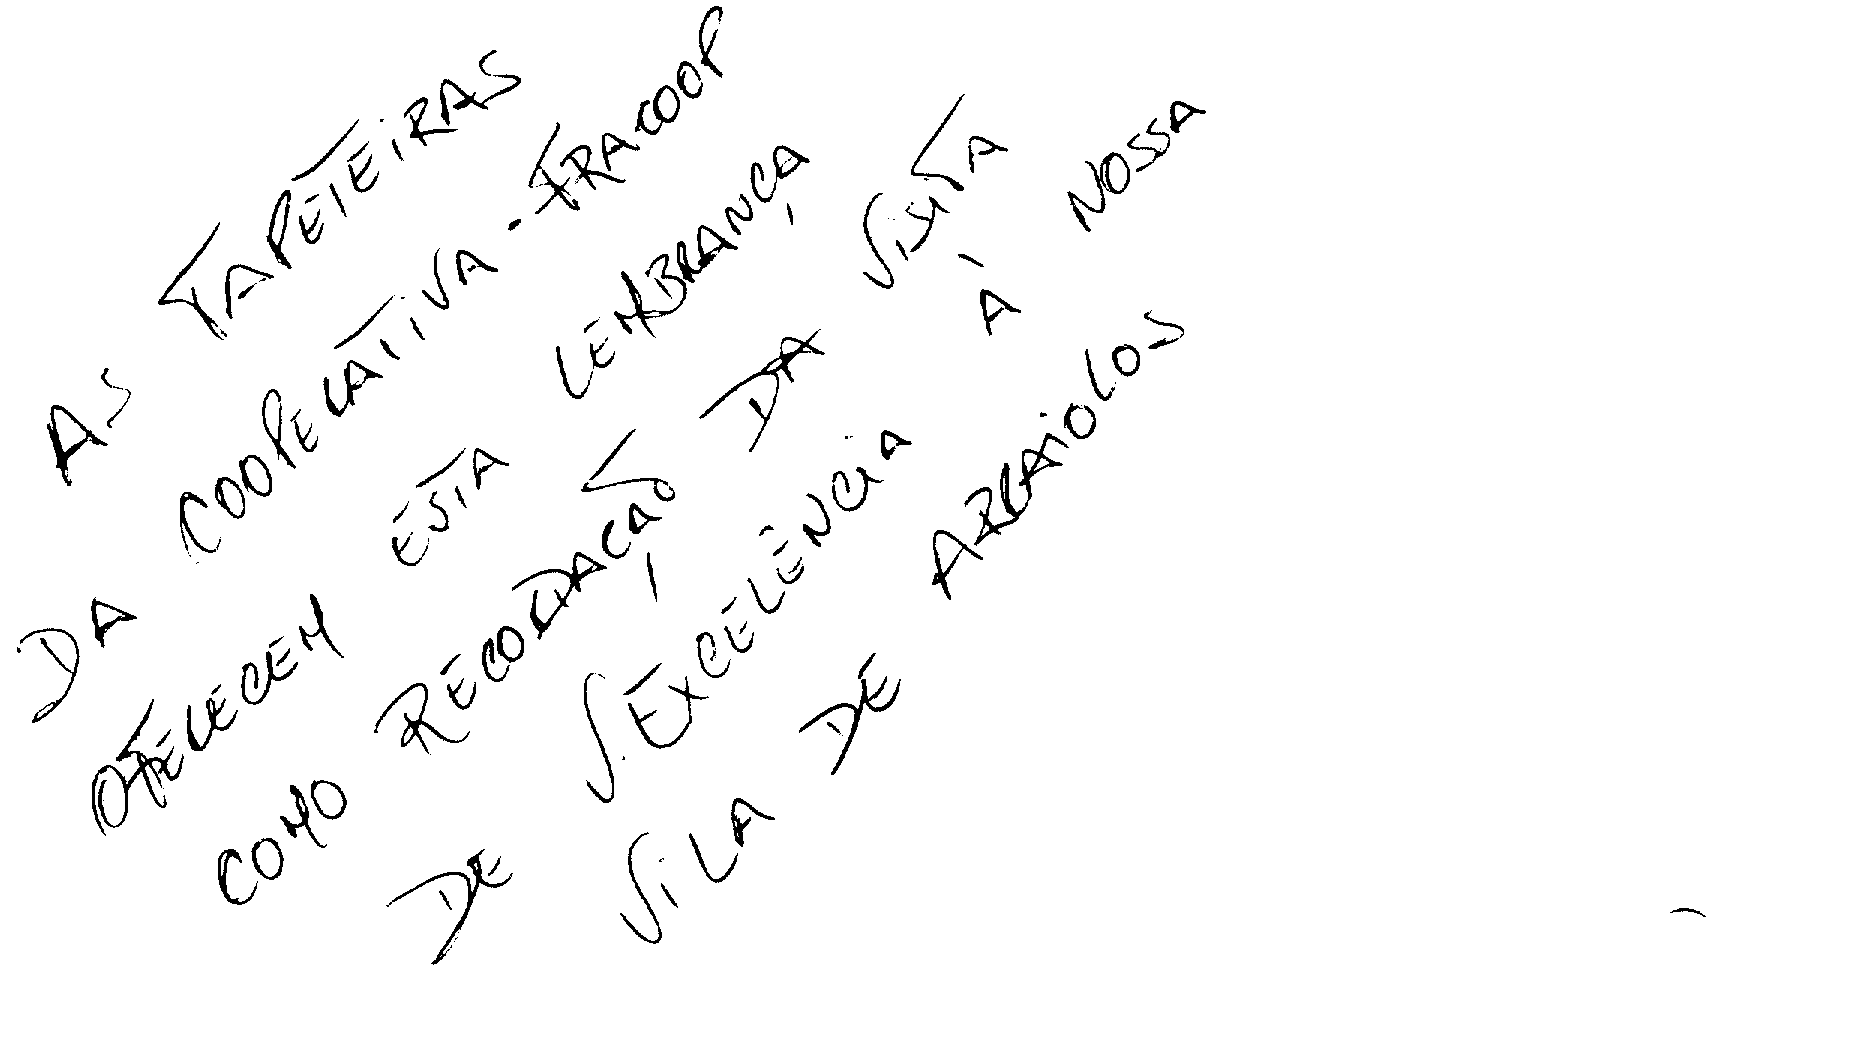 AS TAPETEIRAS
DA COOPERATIVA - FRACOOP
OFERECEM ESTA LEMBRANÇA
COMO RECORDAÇÃO DA VISITA
DE V. EXCELÊNCIA À NOSSA
VILA DE ARRAIOLOS